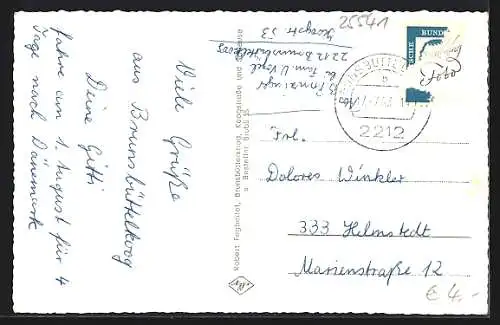 Viele Grüße
aus Brunsbüttelkoog
Deine Gitti
fahre am 1. August für 4
Tage nach Dänemark
25541
Koogstr. 53
2212 Brunsbüttelkoog
b. Fam. U. Vogel
DEUTSCHE BUNDESPOST
BRUNSBÜTTELKOOG
b
2212
Robert Fieguthjun., Brunsbüttelkoog, Koogstraße und Schleuse
Frl.
Dolores Winkler
333 Helmstedt
Marienstraße 12
€ 4,-